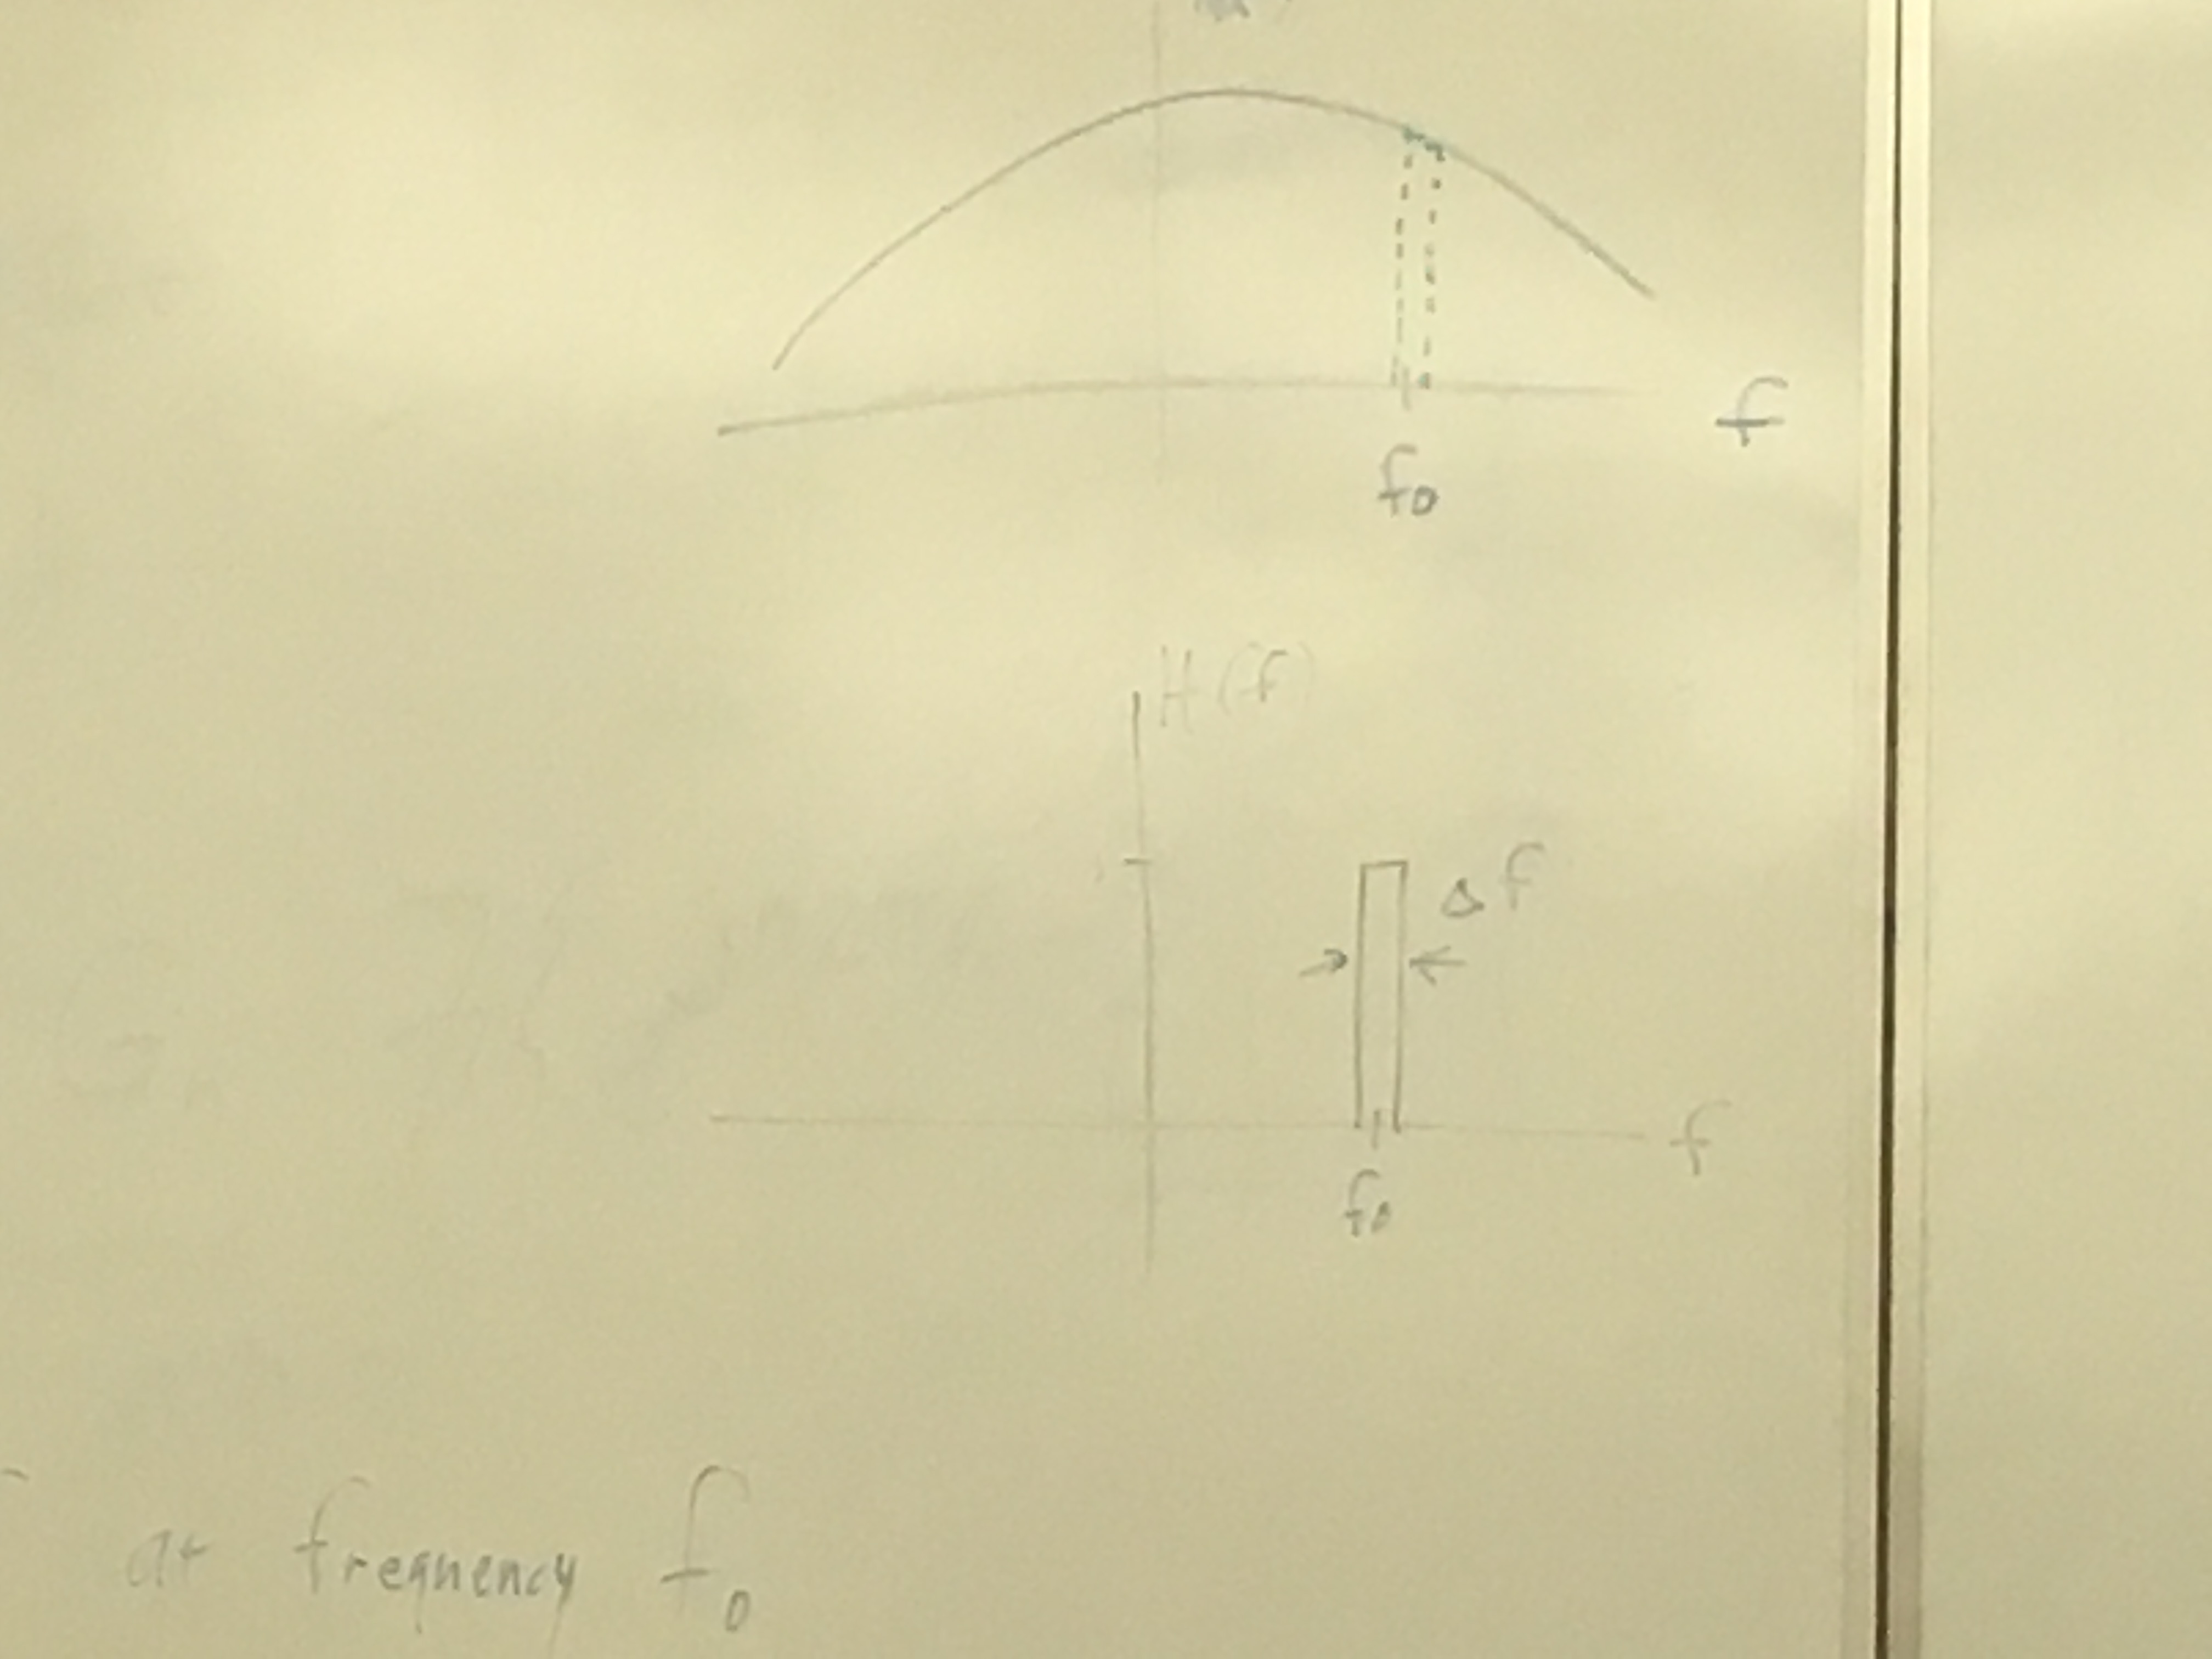 f
f₀
H(f)
Δf
f
f₀
at frequency f₀